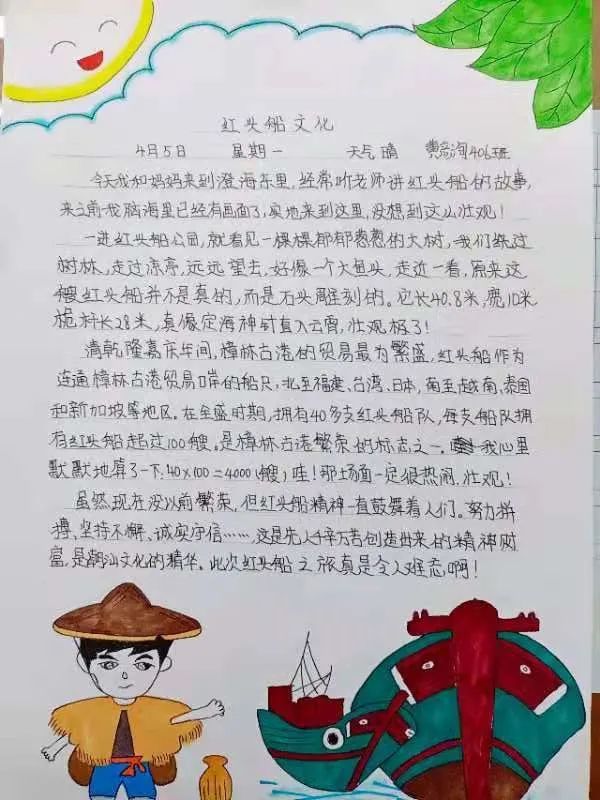 红头船文化
4月5日 星期一 天气晴 406班
今天我和妈妈来到澄海东里,经常听老师讲红头船的故事,
来之前我脑海里已经有画面了,实地来到这里,没想到这么壮观!
一进红头船公园,就看见一棵棵郁郁葱葱的大树,我们练过
树林,走过凉亭,远远望去,好像一个大鱼头,走近一看,原来这
艘红头船并不是真的,而是石头雕刻的。它长40.8米,宽10米
桅杆长28米,真像定海神针直入云霄,壮观极了!
清乾隆嘉庆年间,樟林古港的贸易最为繁盛,红头船作为
连通樟林古港贸易口岸的船只,北至福建、台湾、日本,南至越南、泰国
和新加坡等地区。在全盛时期,拥有40多支红头船队,每支船队拥
有红头船超过100艘。是樟林古港繁荣的标志之一。我心里
默默地算了一下:40×100=4000(艘)哇!那场面一定很热闹、壮观!
虽然现在没以前繁荣,但红头船精神一直鼓舞着人们。努力拼
搏、坚持不懈、诚实守信……这是先人千辛万苦创造出来的精神财
富,是潮汕文化的精华。此次红头船之旅真是令人难忘啊!